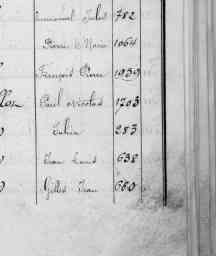 Emmanuel Jules 782
Pierre E Marie 1064
François Pierre 1939
Paul Nicolas 1703
Julien 283
Jean Louis 638
Gilles Jean 680